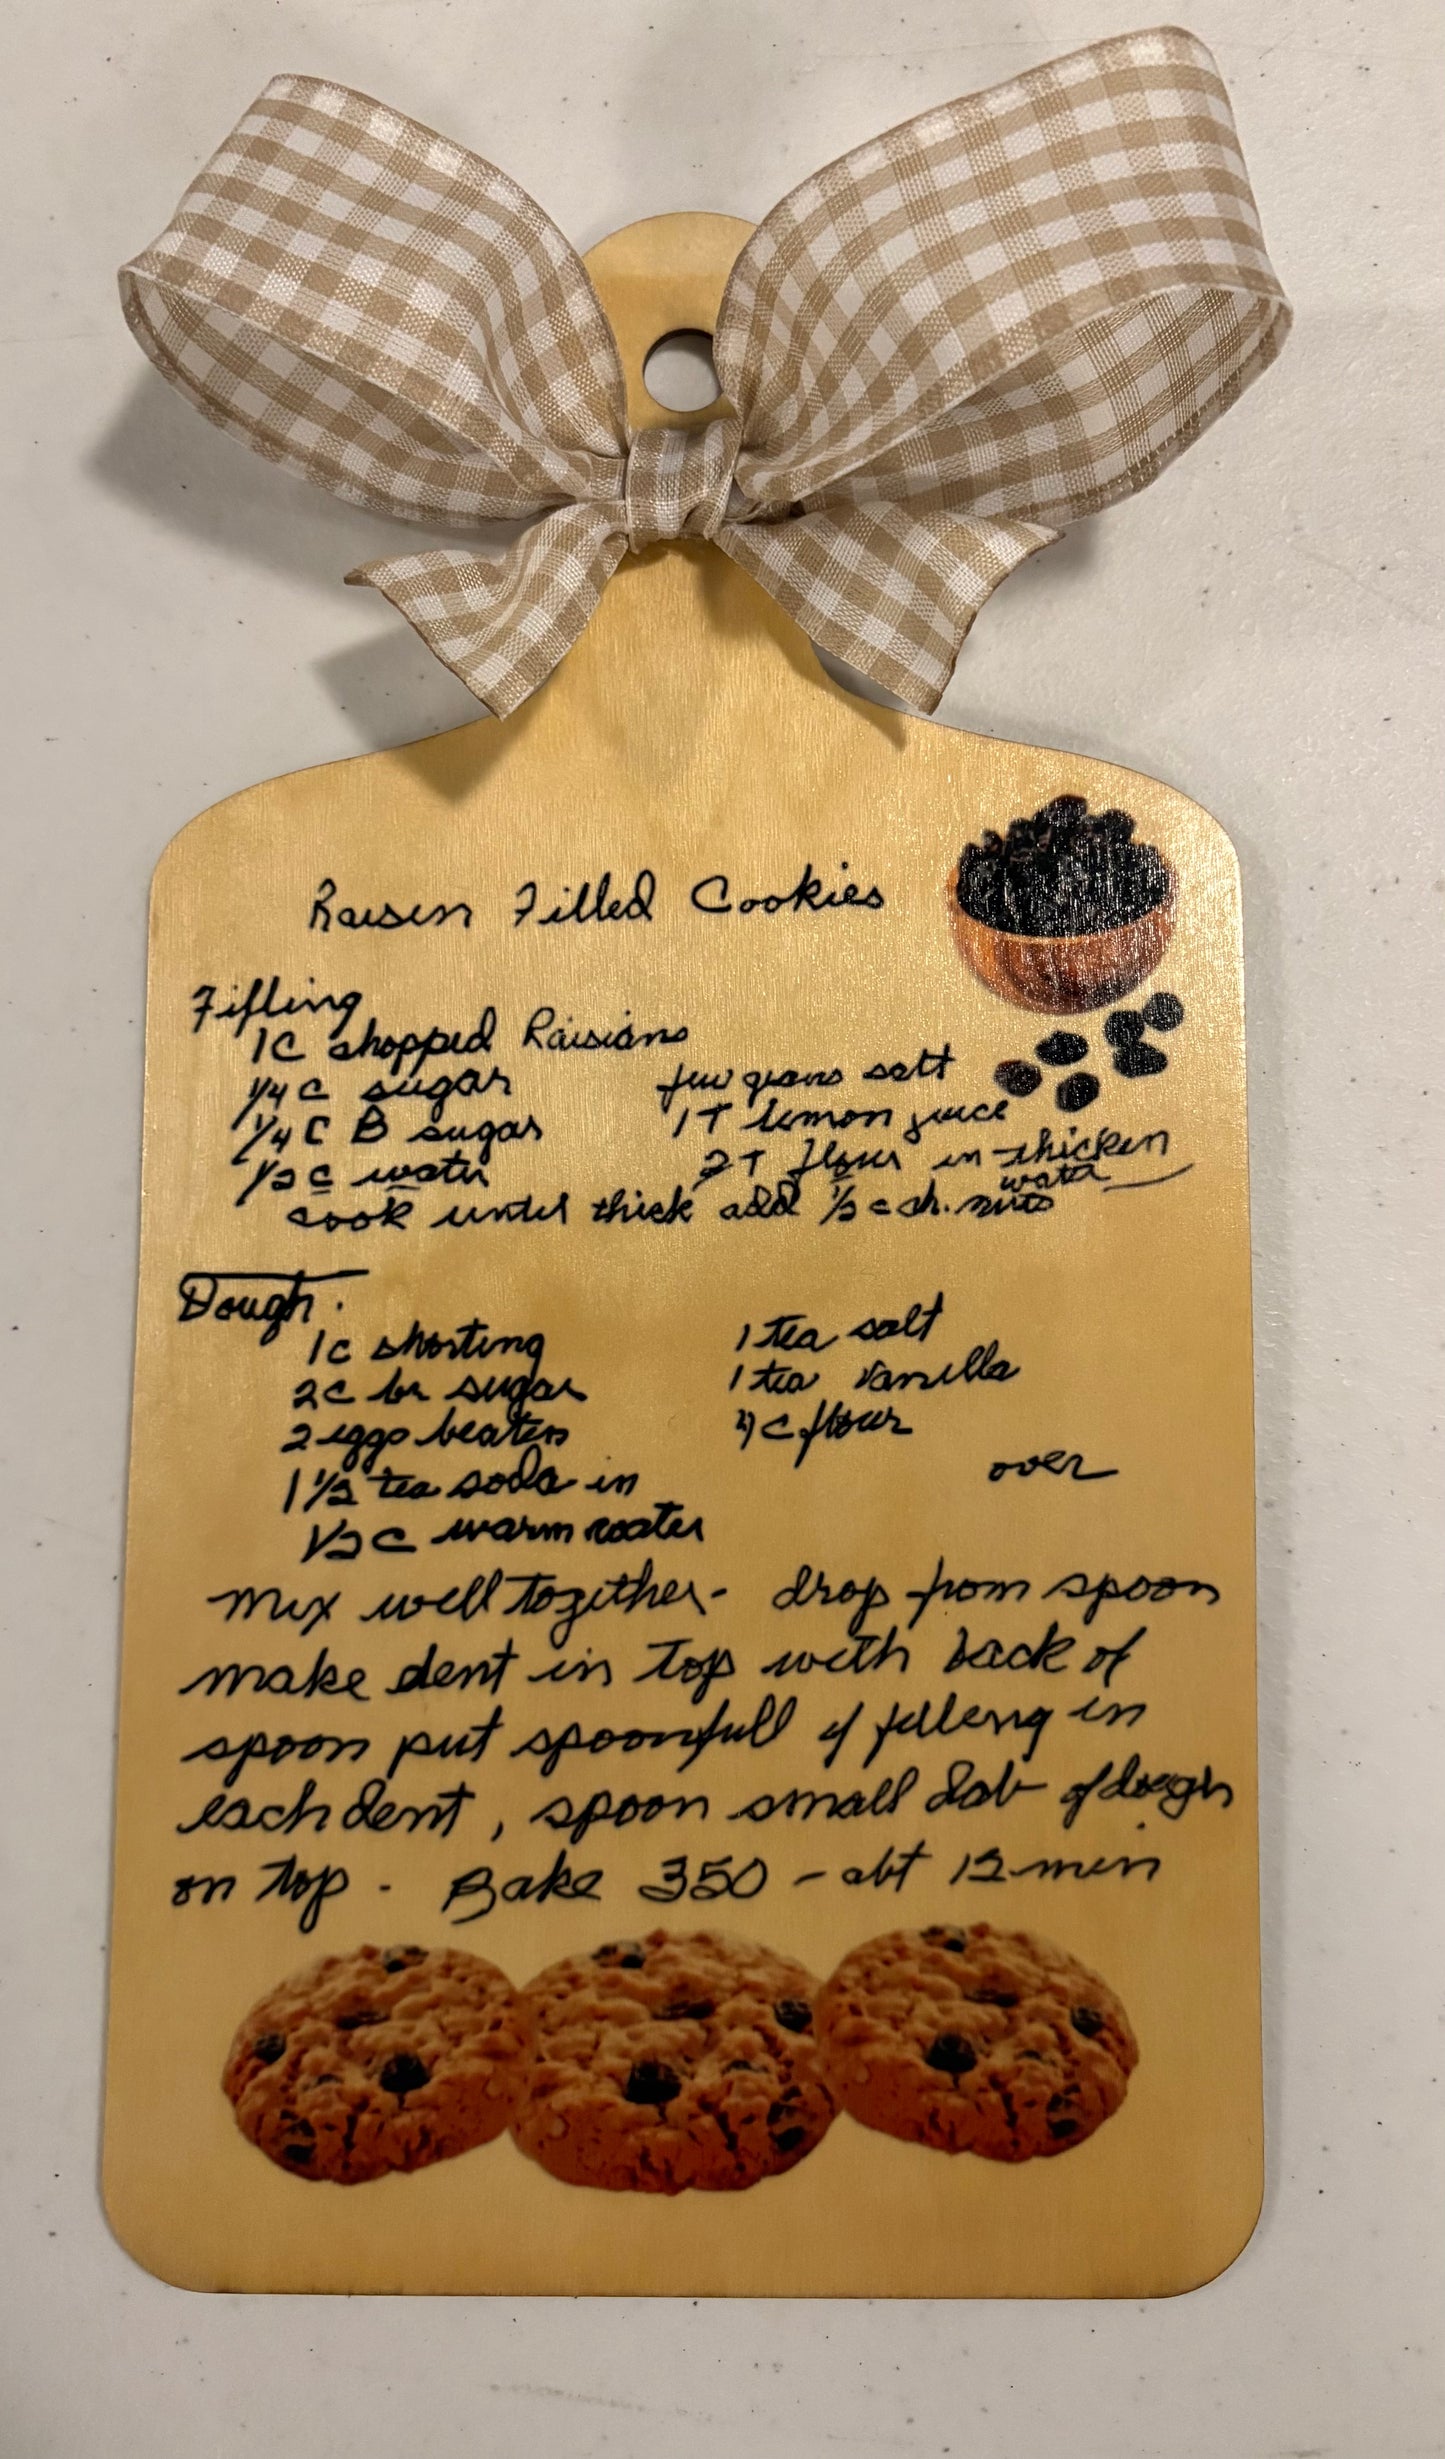 Raisin Filled Cookies
Filling
1C chopped Raisians
1/4 C sugar
1/4 C B sugar
1/2 C water
few grains salt
1 T lemon juice
2 T flour in thicken
water
cook until thick add 1/2 c ch. nuts
Dough.
1c shorting
2C br sugar
2 eggs beaten
1 1/2 tea soda in
1/2 C warm water
1 tea salt
1 tea vanilla
4 C flour
over
Mix well together - drop from spoon
make dent in top with back of
spoon put spoonfull of filling in
each dent, spoon small dab of dough
on top. Bake 350 - abt 12 min